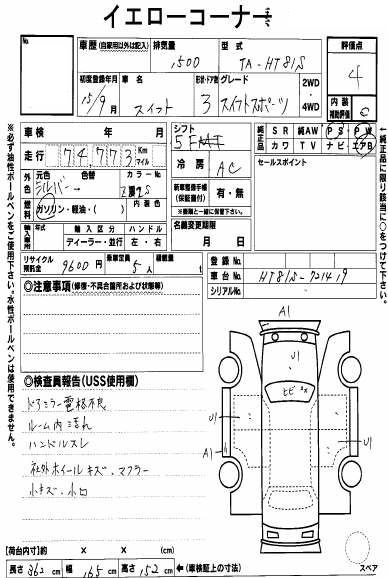 イエローコーナー
No.
車歴 (自家用以外は記入) 排気量 型式 評価点
1500 TA-HT81S 4
初度登録年月 車名 形状・ドア数 グレード 2WD・4WD
15/9月 スイフト 3 スイフトスポーツ
内装補助評価 C
車検 年 月
走行 74773 Km マイル
シフト 5F
純正品 SR 純AW PS PW
カワ TV ナビ エアB
外色 元色 色替 カラーNo
シルバー → Z2S
冷房 AC
セールスポイント
燃料 ガソリン・軽油・( )
新車整備手帳 (保証書付) 有・無
※書類と一緒に保管下さい。
輸入車所 年式 輸入区分 ハンドル
ディーラー・並行 左・右
名義変更期限
月 日
リサイクル預託金 9600円 乗車定員 5人 積載量 t
登録No.
車台No. HT81S-721419
シリアルNo.
◎注意事項 (修復・不具合箇所および状態等)
◎検査員報告 (USS使用欄)
ドアミラー電格不良
ルーム内汚れ
ハンドルスレ
社外ホイールキズ、マフラー
小キズ、小凹
A1
U1
ヒビ
U1
A1
U1
【荷台内寸】約 × × (cm)
長さ 362 cm 幅 165 cm 高さ 152 cm ←(車検証上の寸法)
スペア
※必ず油性ボールペンをご使用下さい。水性ボールペンは使用できません。
←純正品に限り該当に○をつけて下さい。